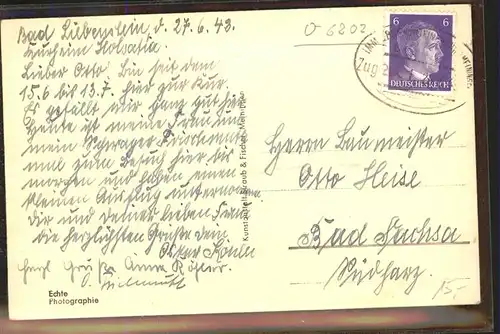 Bad Liebenstein, d. 27.6.43.
Kurheim Holsatia
Lieber Otto! Bin seit dem
15.6 bis 13.7. hier zur Kur.
Es gefällt mir ganz gut hier
Heute ist meine Frau und
mein Schwager
zum Besuch hier bis
morgen und haben einen
kleinen Ausflug unternommen
Dir und deiner lieben Frau
die herzlichsten Grüße dein
herzl Grüße Anna
Helmuth
Echte
Photographie
Kunstanstalt Straub & Fischer, Meiningen
O 6202
6 6
DEUTSCHES REICH
Zug 2
Herrn Baumeister
Otto Heise
Bad Sachsa
Südharz.
15,-